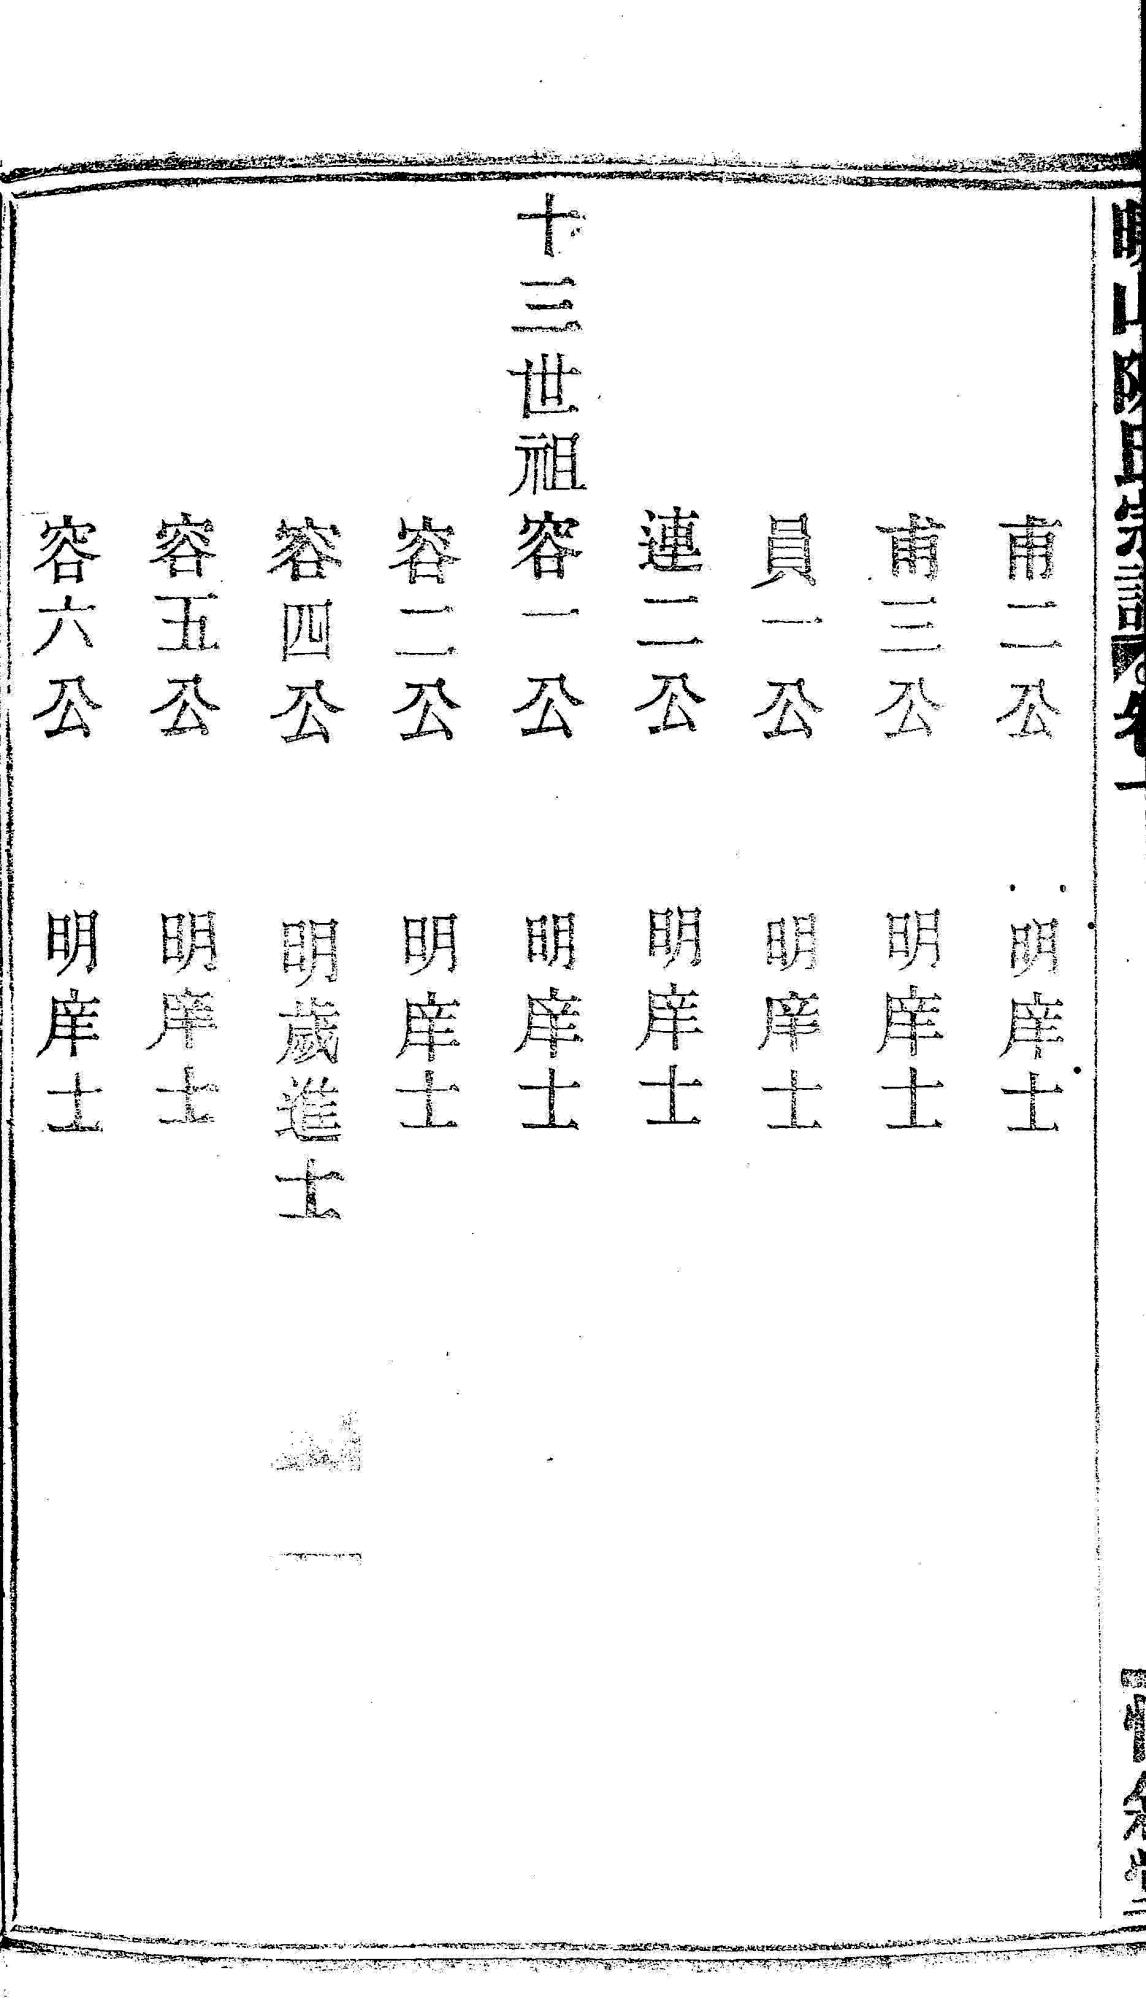 甫二公 明庠士
甫三公 明庠士
員一公 明庠士
連二公 明庠士
十三世祖容一公 明庠士
容二公 明庠士
容四公 明歲進士
容五公 明庠士
容六公 明庠士